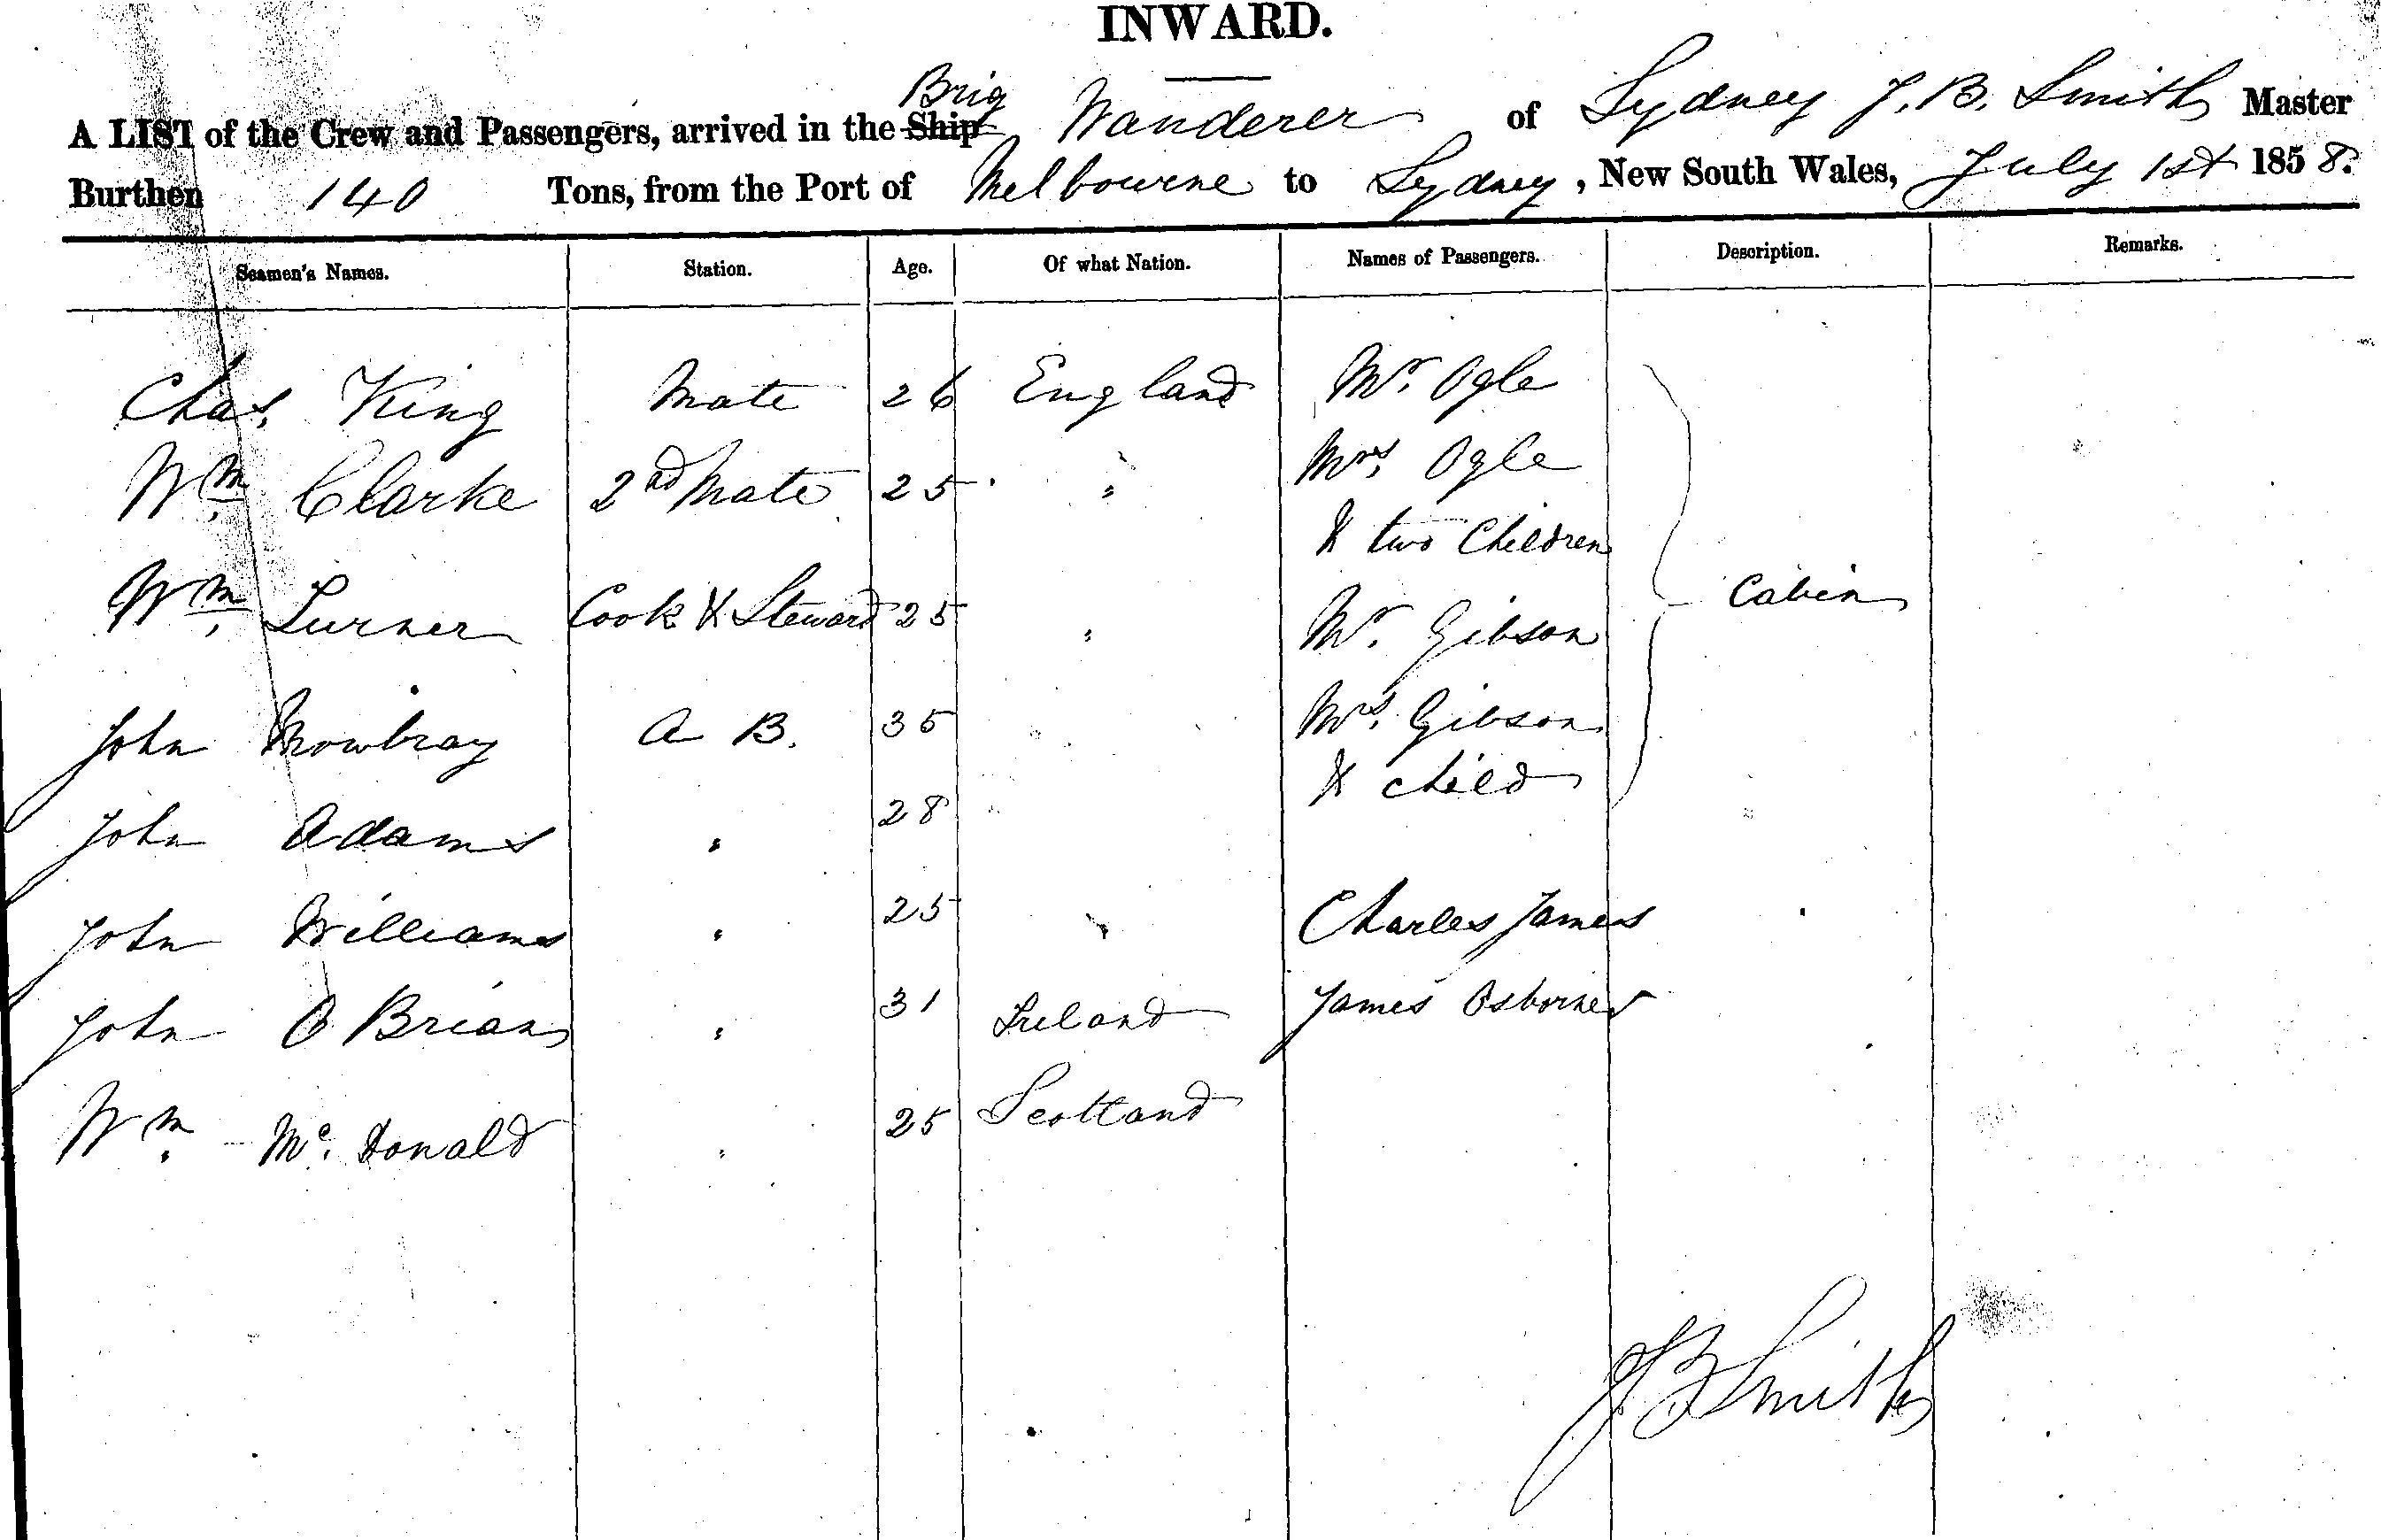 INWARD.
Brig
A LIST of the Crew and Passengers, arrived in the Ship Wanderer of Sydney J. B. Smith Master
Burthen 140 Tons, from the Port of Melbourne to Sydney, New South Wales, July 1st 1858.
Seamen's Names. Station. Age. Of what Nation. Names of Passengers. Description. Remarks.
Chas. King Mate 26 England Mr. Ogle
Wm. Clarke 2nd Mate 25 " Mrs. Ogle
& two Children
Wm. Turner Cook & Steward 25 " Mr. Gibson Cabin
John Mowbray A B. 35 Mrs. Gibson
& child
John Adams " 28
John Williams " 25 " Charles James
John O Brian " 31 Ireland James Osborne
Wm. McDonald " 25 Scotland
J B Smith